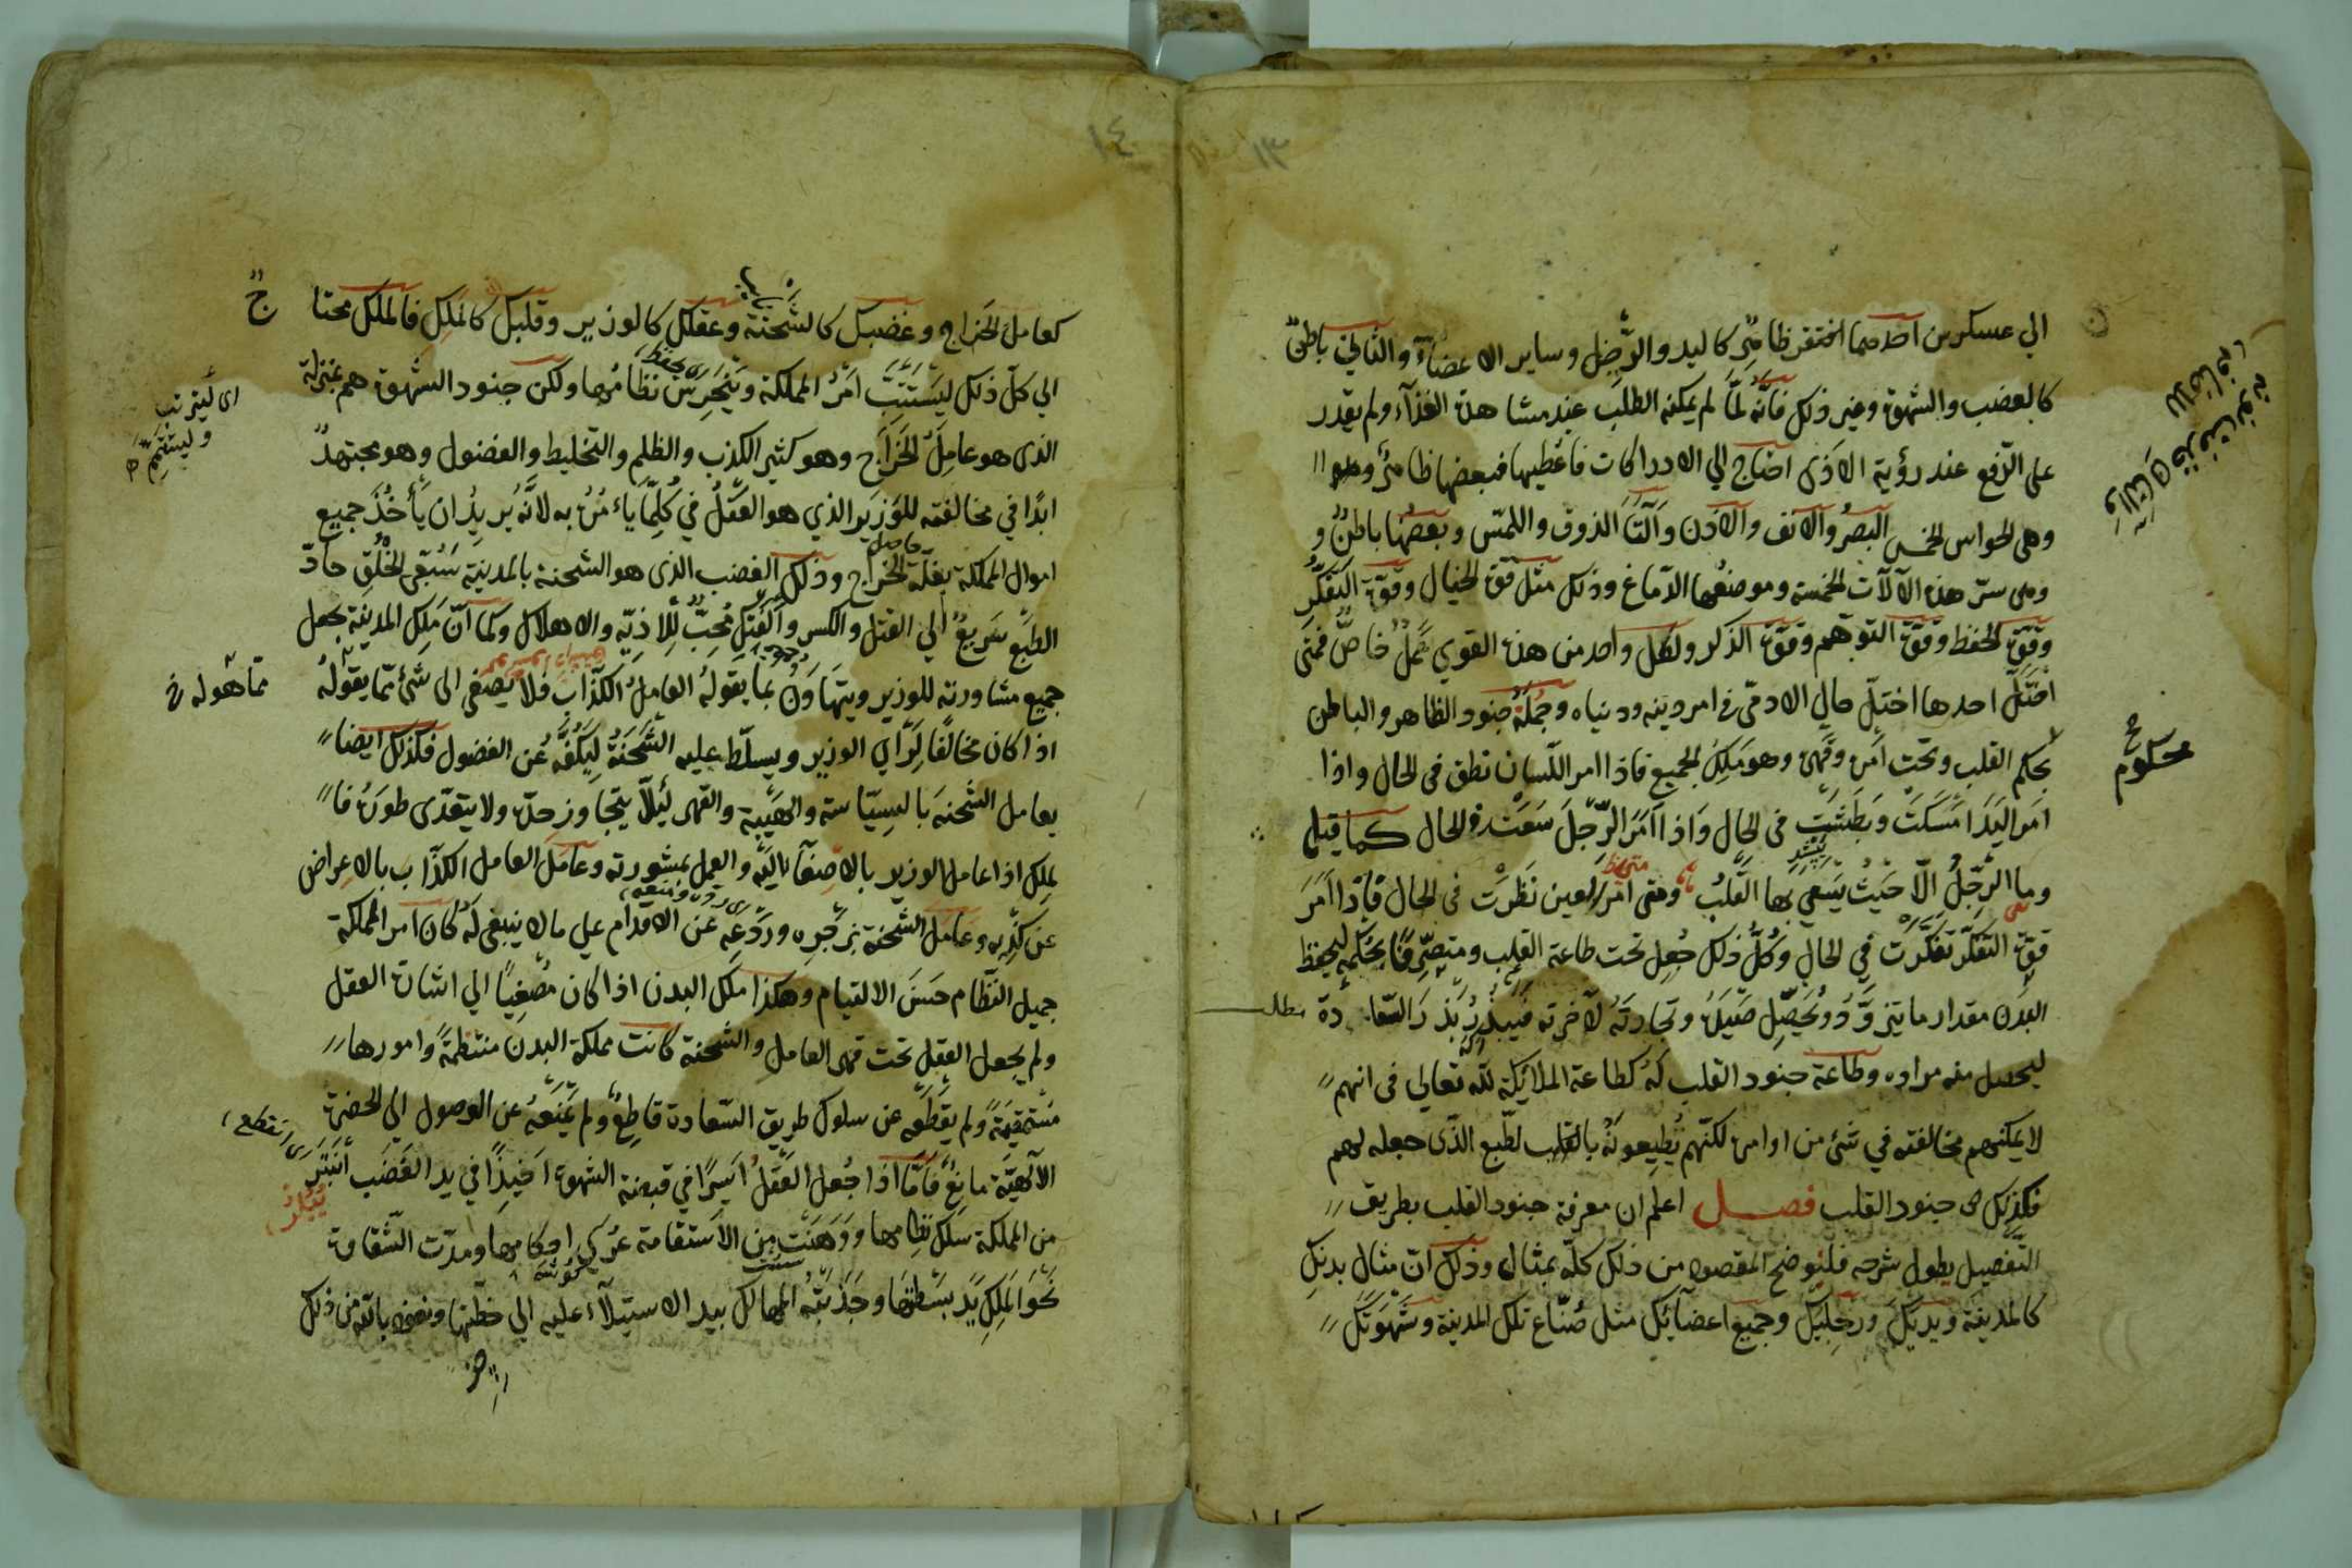 ١٣
الي عسكرين احدهما افتقر ظاهر كاليد والرجل وساير الاعضاء والثاني باطن
كالغضب والشهوة وغير ذلك فانه لما لم يمكنه الطلب عند مشاهدة الغذآء ولم يقدر
على الدفع عند رؤية الاذى احتاج الي الادراكات فاعطيها فبعضها ظاهر وهو
وهى الحواس الخمس البصر والانف والاذن وآلتا الذوق واللمس وبعضها باطن و
وهى ستر هذه الآلات الخمسة وموضعها الدماغ وذلك مثل قوة الخيال وقوة التفكر
وقوة الحفظ وقوة التوهم وقوة الذكر ولكل واحد من هذه القوي عمل خاص فمتى
اختل احدها اختل حال الادمى فى امر دينه ودنياه وجملة جنود الظاهر والباطن
بحكم القلب وتحت امره وقهره وهو ملك الجميع فاذا امر اللسان نطق فى الحال واذا
محكوم
امر اليد امسكت وبطشت فى الحال واذا امر الرجل سعت فى الحال كما قيل
وما الرجل الا حيث يسعي بها القلب ومتى امر العين نظرت فى الحال فاذا امر
قوة التفكر تفكرت في الحال وكل ذلك جعل تحت طاعة القلب ومتصرفا بحكمه ليحفظ
البدن مقدار ما يتزود ويحصل صيده وتجارته لآخرته فيبذر بذر السعادة
ليحصل منه مراده وطاعة جنود القلب له كطاعة الملائكة لله تعالي فى انهم
لا يمكنهم مخالفته في شئ من اوامره لكنهم يطيعونه بالقلب لطبع الذى جعله لهم
فكذلك جنود القلب فصل اعلم ان معرفة جنود القلب بطريق
التفصيل يطول شرحه فلنوضح المقصود من ذلك كله بمثال وذلك ان مثال بدنك
كالمدينة ويديك ورجليك وجميع اعضائك مثل صناع تلك المدينة وشهوتك
١٤
كعامل الخراج وغضبك كالشحنة وعقلك كالوزير وقلبك كالملك فالملك محتا ج
الي كل ذلك ليستتب امر المملكة وينحرس نظامها ولكن جنود الشهوة هم بمنزلة
اى ليترتب
وليستقيم
الذى هو عامل الخراج وهو كثير الكذب والظلم والتخليط والفضول وهو مجتهد
ابدا في مخالفته للوزير الذي هو العقل في كلما يأمره به لانه يريد ان يأخذ جميع
اموال المملكة بغلة الخراج وذلك الغضب الذى هو الشحنة بالمدينة سئ الخلق حاد
الطبع سريع الي القتل والكسر والفتك محب للاذية والاهلاك وكما ان ملك المدينة يجعل
جميع مشاورته للوزير ويتهاون بما يقوله العامل الكذاب فلا يصغى الى شئ مما يقوله
مما هو له خ
اذا كان مخالفا لرأي الوزير ويسلط عليه الشحنة ليكفه عن الفضول فكذلك ايضا
يعامل الشحنة بالسياسة والهيبة والقهر لئلا يتجاوز حده ولا يتعدى طوره فا
لملك اذا عامل الوزير بالاصغآء اليه والعمل بمشورته وعامل العامل الكذاب بالاعراض
عن كذبه وعامل الشحنة بزجره وردعه عن الاقدام علي ما لا ينبغى له كان امر المملكة
جميل النظام حسن الالتيام وهكذا ملك البدن اذا كان مصغيا الي اشارة العقل
ولم يجعل العقل تحت قهر العامل والشحنة كانت مملكة البدن منتظمة وامورها
مستقيمة ولم يقطعه عن سلوك طريق السعادة قاطع ولم يمنعه عن الوصول الي الحضرة
الآلهية مانع فاما اذا جعل العقل اسيرا في قبضة الشهوة اخيذا في يد الغضب انبتر
اى انقطع
من المملكة سلك نظامها ووهنت من الاستقامة عرى احكامها ومدت الشقاوة
نحو الملك يد بسطتها وجذبته المهالك بيد الاستيلآء عليه الي خطتها ونعوذ بالله من ذلك